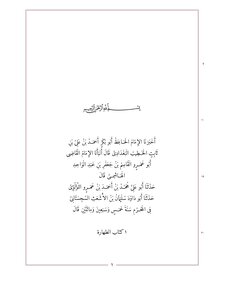 بسم الله الرحمن الرحيم
أَخْبَرَنَا الإِمَامُ الحَافِظُ أَبُو بَكْرٍ أَحْمَدُ بْنُ عَلِيِّ بْنِ
ثَابِتٍ الخَطِيبُ البَغْدَادِيُّ قَالَ أَنْبَأَنَا الإِمَامُ القَاضِي
أَبُو عُمَرَ القَاسِمُ بْنُ جَعْفَرِ بْنِ عَبْدِ الوَاحِدِ
الهَاشِمِيُّ قَالَ
حَدَّثَنَا أَبُو عَلِيٍّ مُحَمَّدُ بْنُ أَحْمَدَ بْنِ عَمْرٍو اللُّؤْلُؤِيُّ
حَدَّثَنَا أَبُو دَاوُدَ سُلَيْمَانُ بْنُ الأَشْعَثِ السِّجِسْتَانِيُّ
فِي المُحَرَّمِ سَنَةَ خَمْسٍ وَسَبْعِينَ وَمِائَتَيْنِ قَالَ
١ كتاب الطهارة